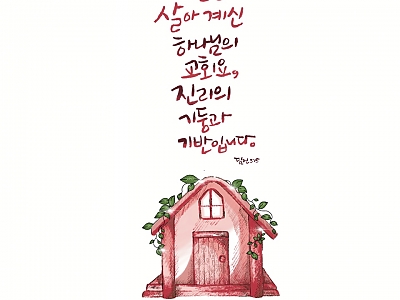 살아 계신
하나님의
교회요,
진리의
기둥과
기반입니다.
딤전 3:15